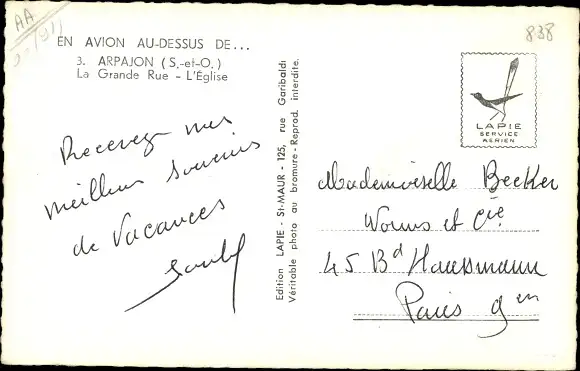 AA
838
EN AVION AU-DESSUS DE...
3. ARPAJON (S.-et-O.)
La Grande Rue - L'Église
Recevez mes
meilleurs souvenirs
de vacances
Edition LAPIE - St-MAUR - 125, rue Garibaldi
Véritable photo au bromure - Reprod. interdite.
LAPIE
SERVICE
AERIEN
Mademoiselle Becker
Worms et Cie
45 Bd Haussmann
Paris 9em